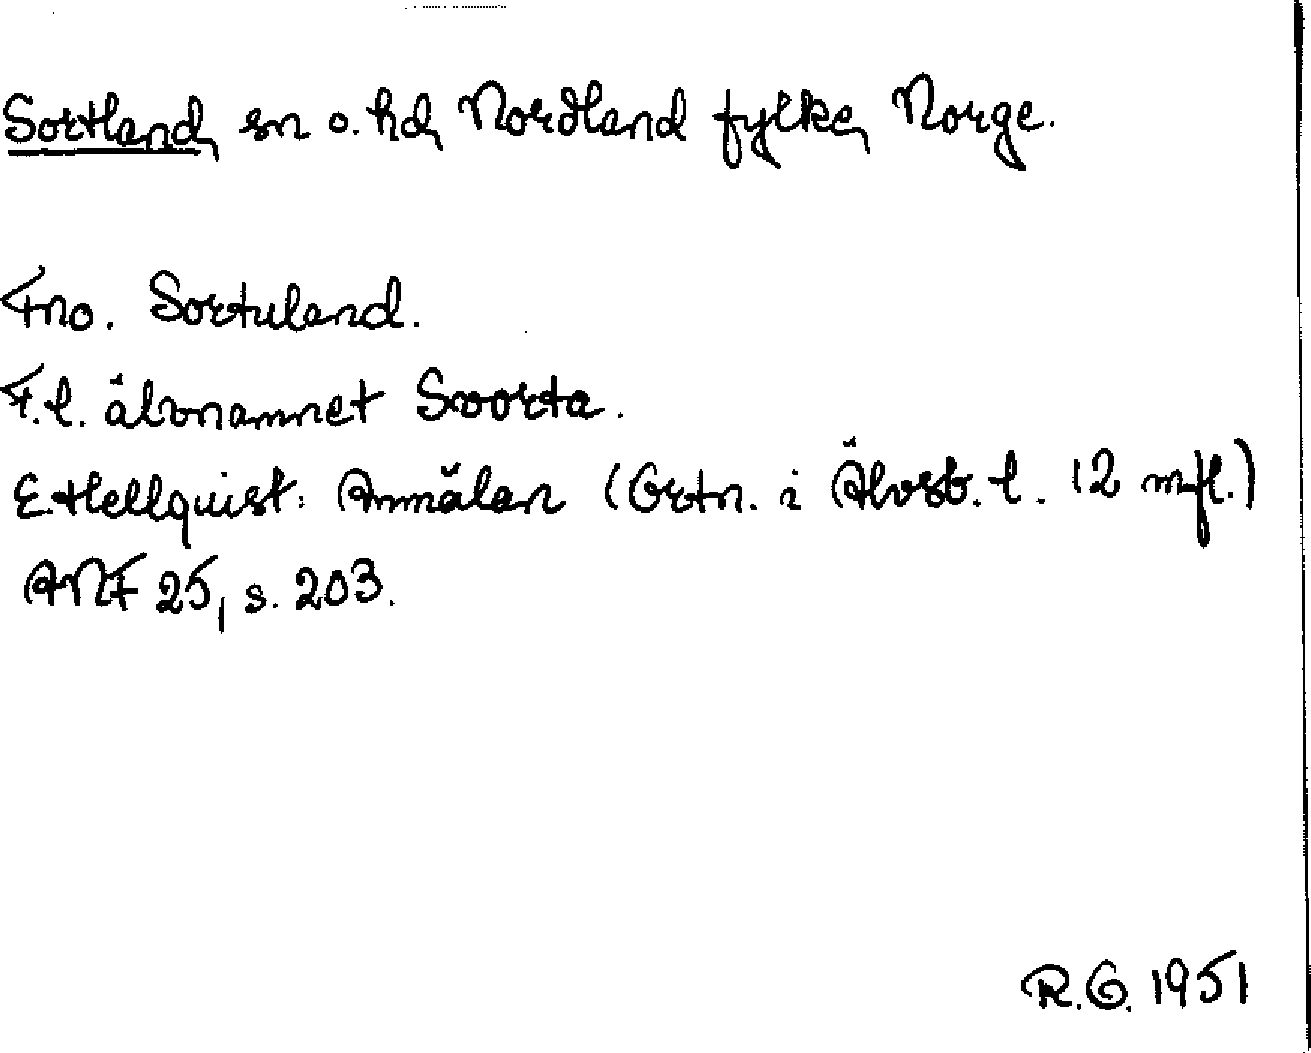 Sortland, sn o. hd, Nordland fylke, Norge.
Fno. Sortuland.
T.l. älvnamnet Svorta.
E. Hellquist: Anmälan (Ortn. i Älvsb. l. 12 m.fl.)
ANF 25, s. 203.
R.G. 1951